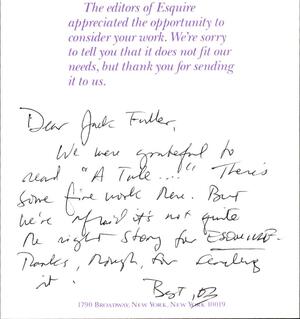 The editors of Esquire
appreciated the opportunity to
consider your work. We're sorry
to tell you that it does not fit our
needs, but thank you for sending
it to us.
Dear Jack Fuller,
We were grateful to
read "A Tale...." There's
some fine work here. But
we're afraid it's not quite
the right story for ESQUIRE.
Thanks, though, for sending
it. Best,
1790 BROADWAY, NEW YORK, NEW YORK 10019